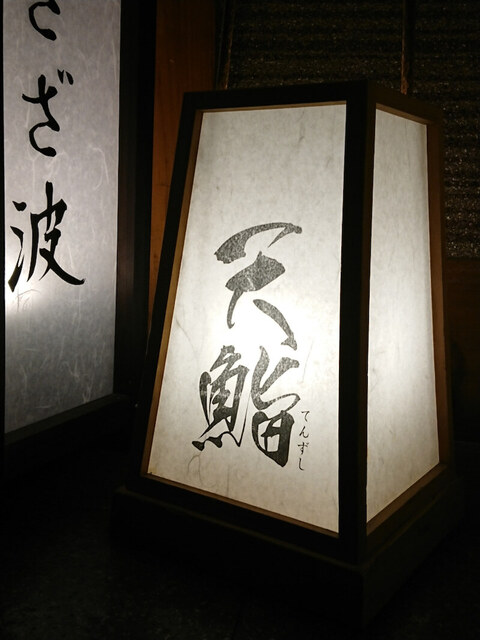 ざ波
天鮨
てんずし